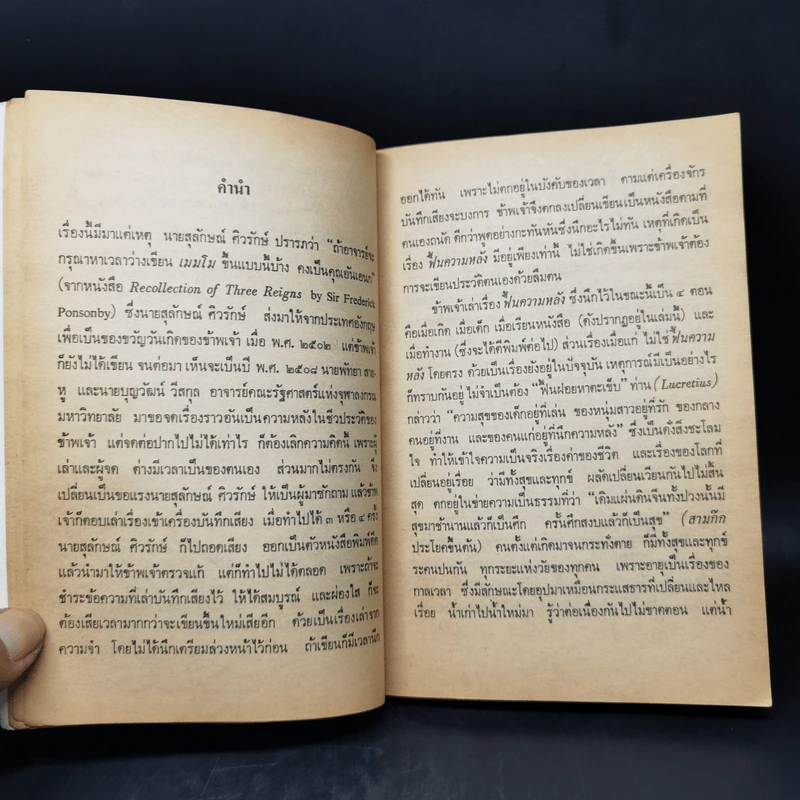 คำนำ
เรื่องนี้มีมาแต่เหตุ นายสุลักษณ์ ศิวรักษ์ ปรารภว่า “ถ้าอาจารย์จะ
กรุณาหาเวลาว่างเขียน เมมโม ขึ้นแบบนี้บ้าง คงเป็นคุณอันเอนก”
(จากหนังสือ Recollection of Three Reigns by Sir Frederick
Ponsonby) ซึ่งนายสุลักษณ์ ศิวรักษ์ ส่งมาให้จากประเทศอังกฤษ
เพื่อเป็นของขวัญวันเกิดของข้าพเจ้า เมื่อ พ.ศ. ๒๕๐๒ แต่ข้าพเจ้า
ก็ยังไม่ได้เขียน จนต่อมา เห็นจะเป็นปี พ.ศ. ๒๕๐๘ นายพัทยา สาย-
หู และนายบุญวัฒน์ วีสกุล อาจารย์คณะรัฐศาสตร์แห่งจุฬาลงกรณ
มหาวิทยาลัย มาขอจดเรื่องราวอันเป็นความหลังในชีวประวัติของ
ข้าพเจ้า แต่จดต่อปากไปไม่ได้เท่าไร ก็ต้องเลิกความคิดนี้ เพราะผู้
เล่าและผู้จด ต่างมีเวลาเป็นของตนเอง ส่วนมากไม่ตรงกัน จึง
เปลี่ยนเป็นขอแรงนายสุลักษณ์ ศิวรักษ์ ให้เป็นผู้มาซักถาม แล้วข้าพ
เจ้าก็ตอบเล่าเรื่องเข้าเครื่องบันทึกเสียง เมื่อทำไปได้ ๓ หรือ ๔ ครั้ง
นายสุลักษณ์ ศิวรักษ์ ก็ไปถอดเสียง ออกเป็นตัวหนังสือพิมพ์ดีด
แล้วนำมาให้ข้าพเจ้าตรวจแก้ แต่ก็ทำไปไม่ได้ตลอด เพราะถ้าจะ
ชำระข้อความที่เล่าบันทึกเสียงไว้ ให้ได้สมบูรณ์ และผ่องใส ก็จะ
ต้องเสียเวลามากกว่าจะเขียนขึ้นใหม่เสียอีก ด้วยเป็นเรื่องเล่าจาก
ความจำ โดยไม่ได้นึกเตรียมล่วงหน้าไว้ก่อน ถ้าเขียนก็มีเวลานึก
ออกได้ทัน เพราะไม่ตกอยู่ในบังคับของเวลา ตามแต่เครื่องจักร
บันทึกเสียงจะบงการ ข้าพเจ้าจึงตกลงเปลี่ยนเขียนเป็นหนังสือตามที่
ตนเองถนัด ดีกว่าพูดอย่างกะทันหันซึ่งนึกอะไรไม่ทัน เหตุที่เกิดเป็น
เรื่อง ฟื้นความหลัง มีอยู่เพียงเท่านี้ ไม่ใช่เกิดขึ้นเพราะข้าพเจ้าต้อง
การจะเขียนประวัติตนเองด้วยลืมตน
ข้าพเจ้าเล่าเรื่อง ฟื้นความหลัง ซึ่งนึกไว้ในขณะนี้เป็น ๔ ตอน
คือเมื่อเกิด เมื่อเด็ก เมื่อเรียนหนังสือ (ดังปรากฏอยู่ในเล่มนี้) และ
เมื่อทำงาน (ซึ่งจะได้ตีพิมพ์ต่อไป) ส่วนเรื่องเมื่อแก่ ไม่ใช่ ฟื้นความ
หลัง โดยตรง ด้วยเป็นเรื่องยังอยู่ในปัจจุบัน เหตุการณ์มีเป็นอย่างไร
ก็ทราบกันอยู่ ไม่จำเป็นต้อง “ฟื้นฝอยหาตะเข็บ” ท่าน (Lucretius)
กล่าวว่า “ความสุขของเด็กอยู่ที่เล่น ของหนุ่มสาวอยู่ที่รัก ของกลาง
คนอยู่ที่งาน และของคนแก่อยู่ที่นึกความหลัง” ซึ่งเป็นดั่งสิ่งชะโลม
ใจ ทำให้เข้าใจความเป็นจริงเรื่องค่าของชีวิต และเรื่องของโลกที่
เปลี่ยนอยู่เรื่อย ว่ามีทั้งสุขและทุกข์ ผลัดเปลี่ยนเวียนกันไปไม่สิ้น
สุด ตกอยู่ในข่ายความเป็นธรรมที่ว่า “เดิมแผ่นดินจีนทั้งปวงนั้นมี
สุขมาช้านานแล้วก็เป็นศึก ครั้นศึกสงบแล้วก็เป็นสุข” (สามก๊ก
ประโยคขึ้นต้น) คนตั้งแต่เกิดมาจนกระทั่งตาย ก็มีทั้งสุขและทุกข์
ระคนปนกัน ทุกระยะแห่งวัยของทุกคน เพราะอายุเป็นเรื่องของ
กาลเวลา ซึ่งมีลักษณะโดยอุปมาเหมือนกระแสธารที่เปลี่ยนและไหล
เรื่อย น้ำเก่าไปน้ำใหม่มา รู้ว่าต่อเนื่องกันไปไม่ขาดตอน แต่น้ำ